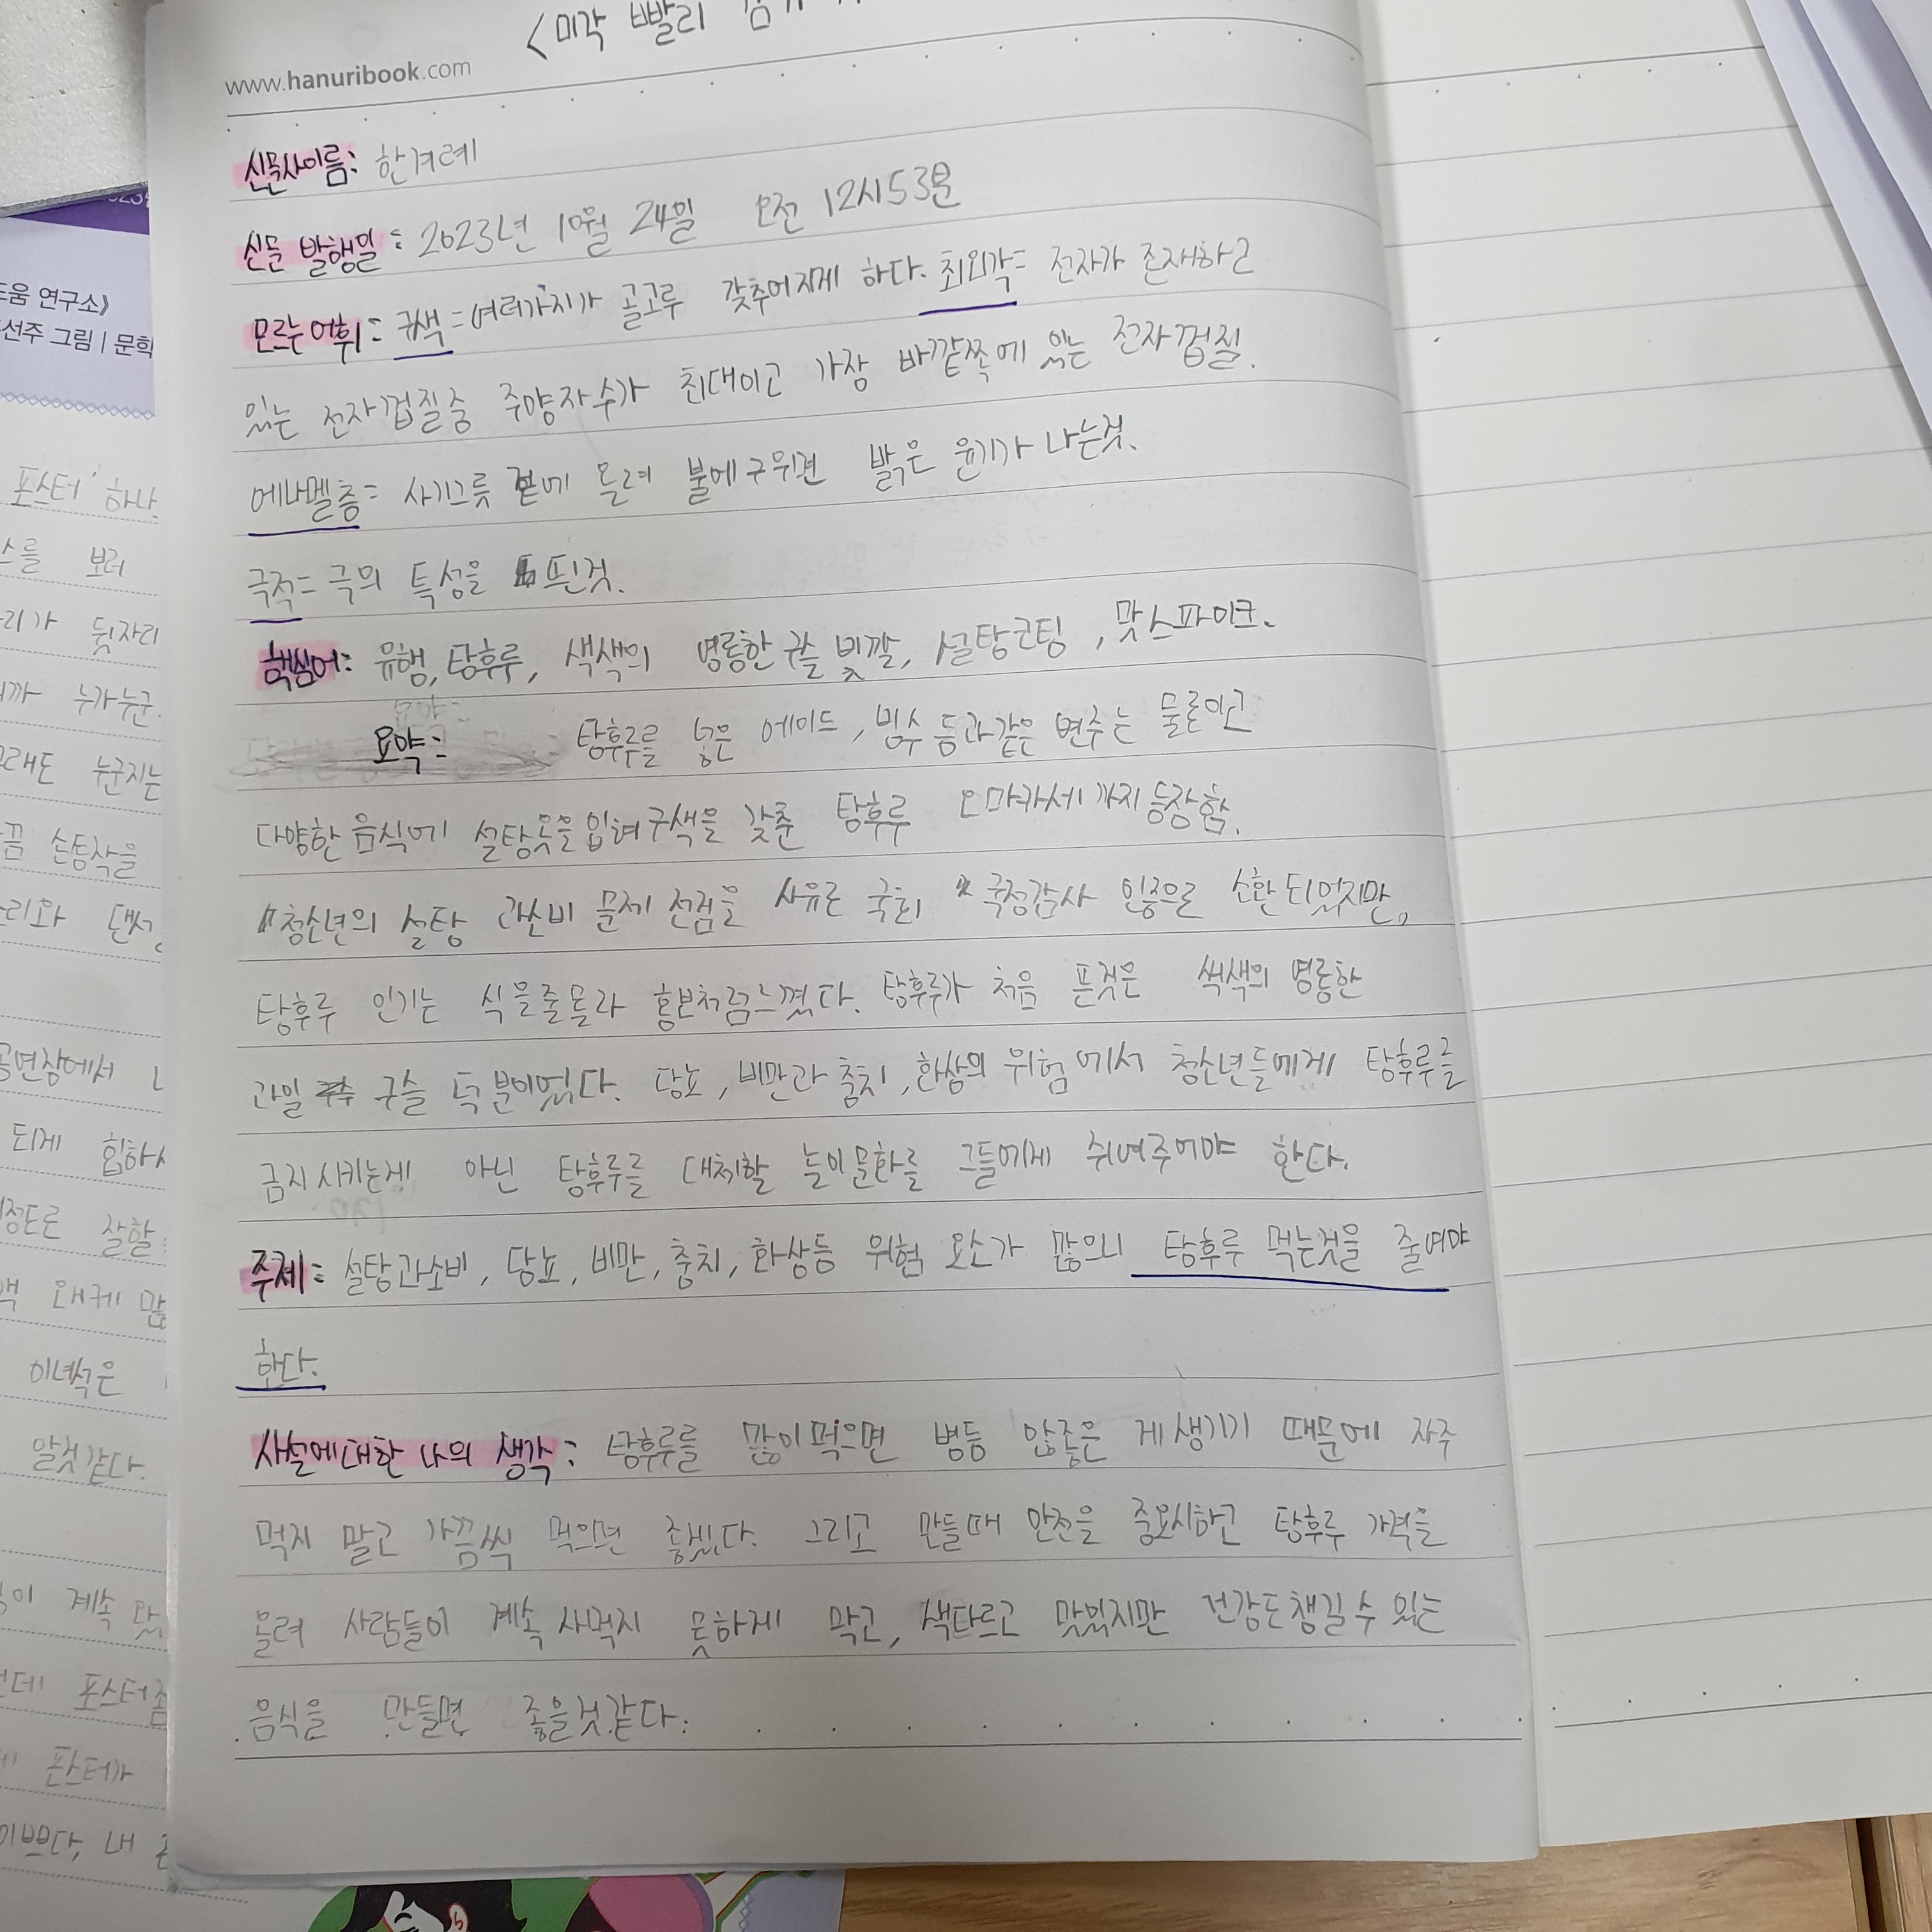 <미각 빨리
www.hanuribook.com
신문사이름: 한겨레
신문 발행일: 2023년 10월 24일 오전 12시53분
모르는어휘= 구색=여러가지가 골고루 갖추어지게 하다. 최외각= 전자가 존재하고
있는 전자껍질중 주양자수가 최대이고 가장 바깥쪽에 있는 전자껍질.
에나멜층= 사기그릇 겉에 올려 불에구워 밝은 윤기가 나는것.
극적= 극의 특성을 띈것.
핵심어: 유행, 탕후루, 색색의 영롱한 구슬 빛깔, 설탕코팅, 맛스파이크.
요약: 탕후루를 넣은 에이드, 빙수 등과같은 변주는 물론이고
다양한 음식에 설탕옷을입혀구색을 갖춘 탕후루 오마카세까지 등장함.
청소년의 설탕 과소비 문제 선점을 사유로 국회 국정감사 인증으로 소환되었지만,
탕후루 인기는 식을줄몰라 홍보처럼느꼈다. 탕후루가 처음 뜬것은 색색의 영롱한
과일 구슬 덕분이었다. 당뇨, 비만과 충치, 화상의 위험에서 청소년들에게 탕후루를
금지시키는게 아닌 탕후루를 대체할 놀이문화를 그들에게 쥐여주어야 한다.
주제: 설탕과소비, 당뇨, 비만, 충치, 화상등 위험 요소가 많으니 탕후루 먹는것을 줄여야
한다.
사설에대한 나의 생각: 탕후루를 많이먹으면 병등 않좋은 게생기기 때문에 자주
먹지 말고 가끔씩 먹으면 좋겠다. 그리고 만들때 안전을 중요시하고 탕후루 가격을
올려 사람들이 계속 사먹지 못하게 막고, 색다르고 맛있지만 건강도챙길수 있는
음식을 만들면 좋을것같다.
도움 연구소》
선주 그림 | 문학
포스터 하나
스를 보러
리가 뒷자리
까 누가누군
그래도 누군지는
손통작을
리와 댄서
공연장에서
되게 힙하
정도로 잘할
왜케 많
이녀석은
알것같다.
이 계속
데 포스터좀
포스터가
이쁘다, 내